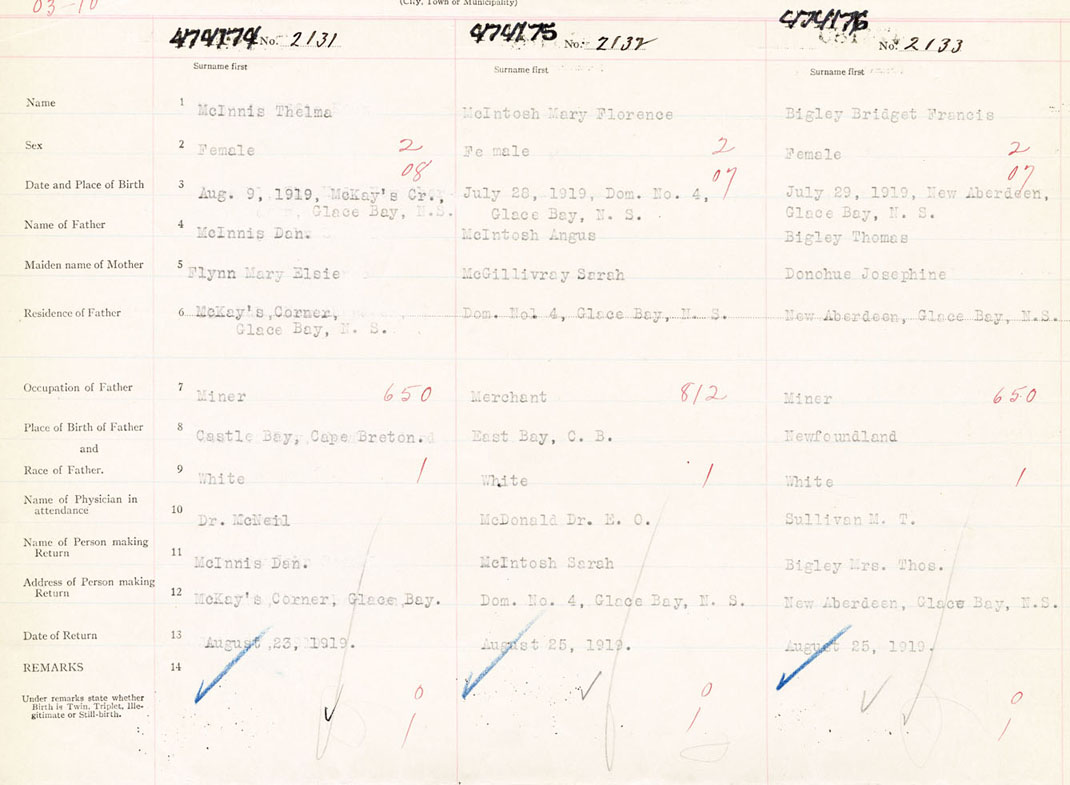 03-10
(City, Town or Municipality)
474174 No. 2131 474175 No. 2132 474176 No. 2133
Surname first Surname first Surname first
Name 1 McInnis Thelma McIntosh Mary Florence Bigley Bridget Francis
Sex 2 Female 2 Fe male 2 Female 2
08 07 07
Date and Place of Birth 3 Aug. 9, 1919, McKay's Cr., July 28, 1919, Dom. No. 4, July 29, 1919, New Aberdeen,
Glace Bay, N.S. Glace Bay, N. S. Glace Bay, N. S.
Name of Father 4 McInnis Dan. McIntosh Angus Bigley Thomas
Maiden name of Mother 5 Flynn Mary Elsie McGillivray Sarah Donohue Josephine
Residence of Father 6 McKay's Corner, Dom. No1 4, Glace Bay, N. S. New Aberdeen, Glace Bay, N.S.
Glace Bay, N. S.
Occupation of Father 7 Miner 650 Merchant 812 Miner 650
Place of Birth of Father 8 Castle Bay, Cape Breton. East Bay, C. B. Newfoundland
and
Race of Father. 9 White 1 White 1 White 1
Name of Physician in
attendance 10 Dr. McNeil McDonald Dr. E. O. Sullivan M. T.
Name of Person making
Return 11 McInnis Dan. McIntosh Sarah Bigley Mrs. Thos.
Address of Person making
Return 12 McKay's Corner, Glace Bay. Dom. No. 4, Glace Bay, N. S. New Aberdeen, Glace Bay, N.S.
Date of Return 13 August 23, 1919. August 25, 1919. August 25, 1919.
REMARKS 14
Under remarks state whether 0 0 0
Birth is Twin, Triplet, Ille-
gitimate or Still-birth. 1 1 1